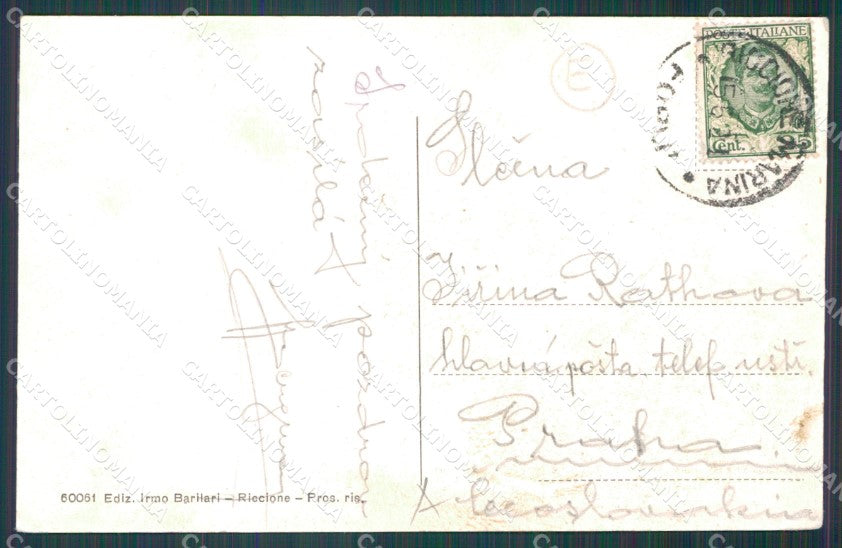 Srdečný pozdrav
zasílá
E
POSTE ITALIANE
Cent. 25
RICCIONE MARINA
Slečna
Jiřina Rathova
hlavní pošta, telef. ústř.
Praha
Čecoslovakia
60061 Ediz. Irmo Barilari – Riccione – Pros. ris.
CARTOLINOMANIA